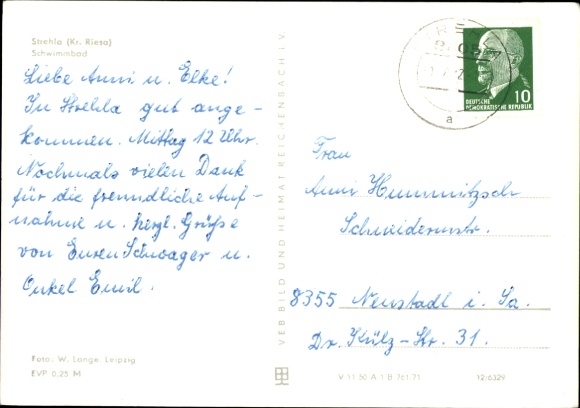 Strehla (Kr. Riesa)
Schwimmbad
Liebe Anni u. Elke!
In Strehla gut ange-
kommen. Mittag 12 Uhr.
Nochmals vielen Dank
für die freundliche Auf-
nahme u. herzl. Grüße
von Euren Schwager u.
Onkel Emil.
Foto: W. Lange, Leipzig
EVP 0,25 M
VEB BILD UND HEIMAT REICHENBACH I. V.
10
DEUTSCHE
DEMOKRATISCHE REPUBLIK
a
Frau
Anni Hummitzsch
Schneidermstr.
8355 Neustadt i. Sa.
Dr. Külz-Str. 31.
V 11 50 A 1 B 761/71
12/6329